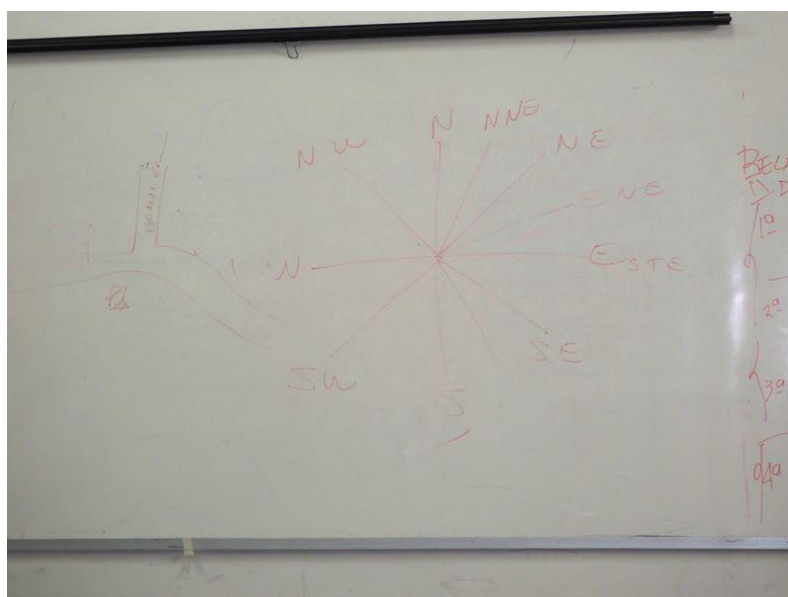 N W
N
NNE
N E
E N E
N
ESTE
S W
S
S E
1ª
2ª
3ª
4ª